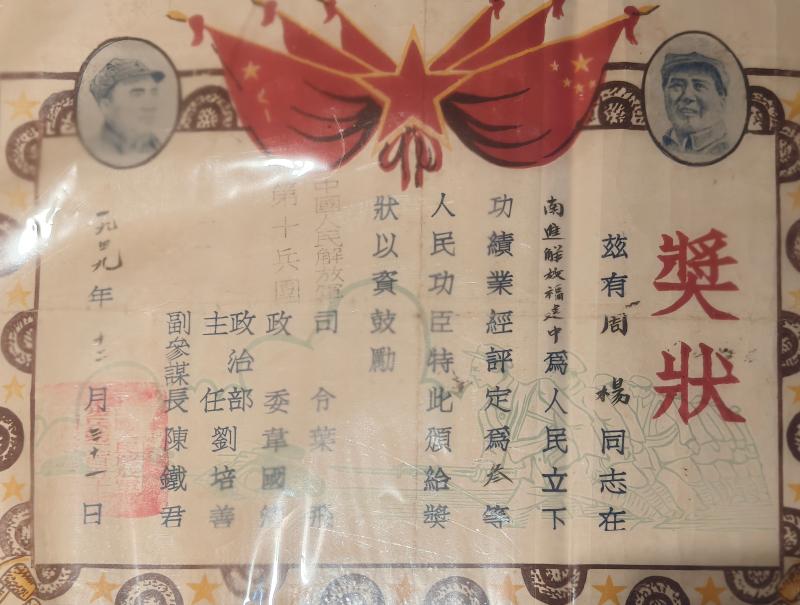 奬狀
茲有周楊同志在
南進解放福建中為人民立下
功績業經評定為叁等
人民功臣特此頒給奬
狀以資鼓勵
中國人民解放軍
第十兵團
司令葉飛
政委韋國清
政治部
主任劉培善
副參謀長陳鐵君
一九四九年十二月三十一日